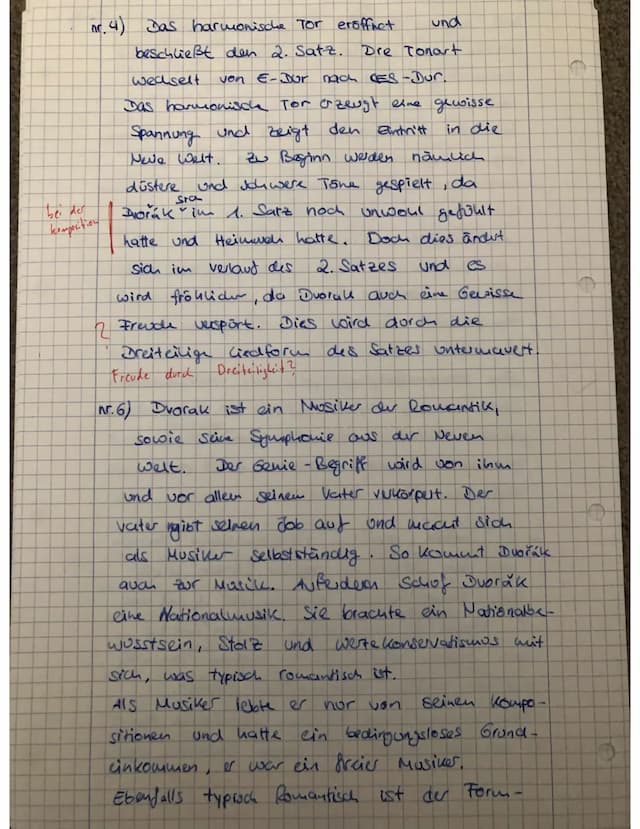 nr. 4) Das harmonische Tor eröffnet und
beschließt den 2. Satz. Die Tonart
wechselt von E-Dur nach DES-Dur.
Das harmonische Tor erzeugt eine gewisse
Spannung und zeigt den Eintritt in die
Neue Welt. Zu Beginn werden nämlich
düstere und schwere Töne gespielt, da
bei der Komposition
Dvořák sich im 1. Satz noch unwohl gefühlt
hatte und Heimweh hatte. Doch dies ändert
sich im Verlauf des 2. Satzes und es
wird fröhlicher, da Dvorak auch eine Gewisse
? Freude verspürt. Dies wird durch die
Dreiteilige Liedform des Satzes untermauert.
Freude durch Dreiteiligkeit?
nr. 6) Dvorak ist ein Musiker der Romantik,
sowie seine Symphonie aus der Neuen
Welt. Der Genie-Begriff wird von ihm
und vor allem seinem Vater verkörpert. Der
Vater gibt seinen Job auf und macht sich
als Musiker selbstständig. So kommt Dvořák
auch zur Musik. Außerdem schof Dvořák
eine Nationalmusik. Sie brachte ein Nationalbe-
wusstsein, Stolz und Wertekonservatismus mit
sich, was typisch romantisch ist.
Als Musiker lebte er nur von seinen Kompo-
sitionen und hatte ein bedingungsloses Grund-
einkommen, er war ein freier Musiker.
Ebenfalls typisch Romantisch ist der Form-